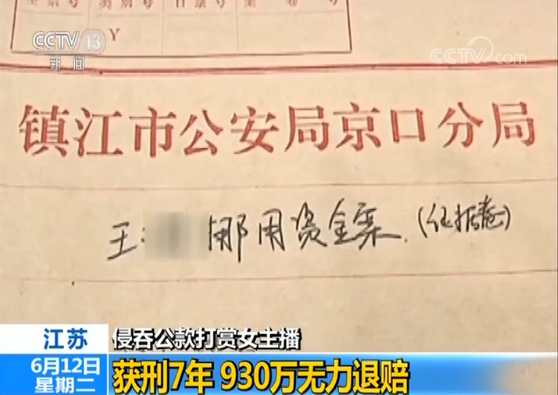 CCTV 13
新闻
CCTV.com
Y
镇江市公安局京口分局
王 挪用资金案.(证据卷)
江苏
侵吞公款打赏女主播
6月12日
星期二
获刑7年 930万无力退赔